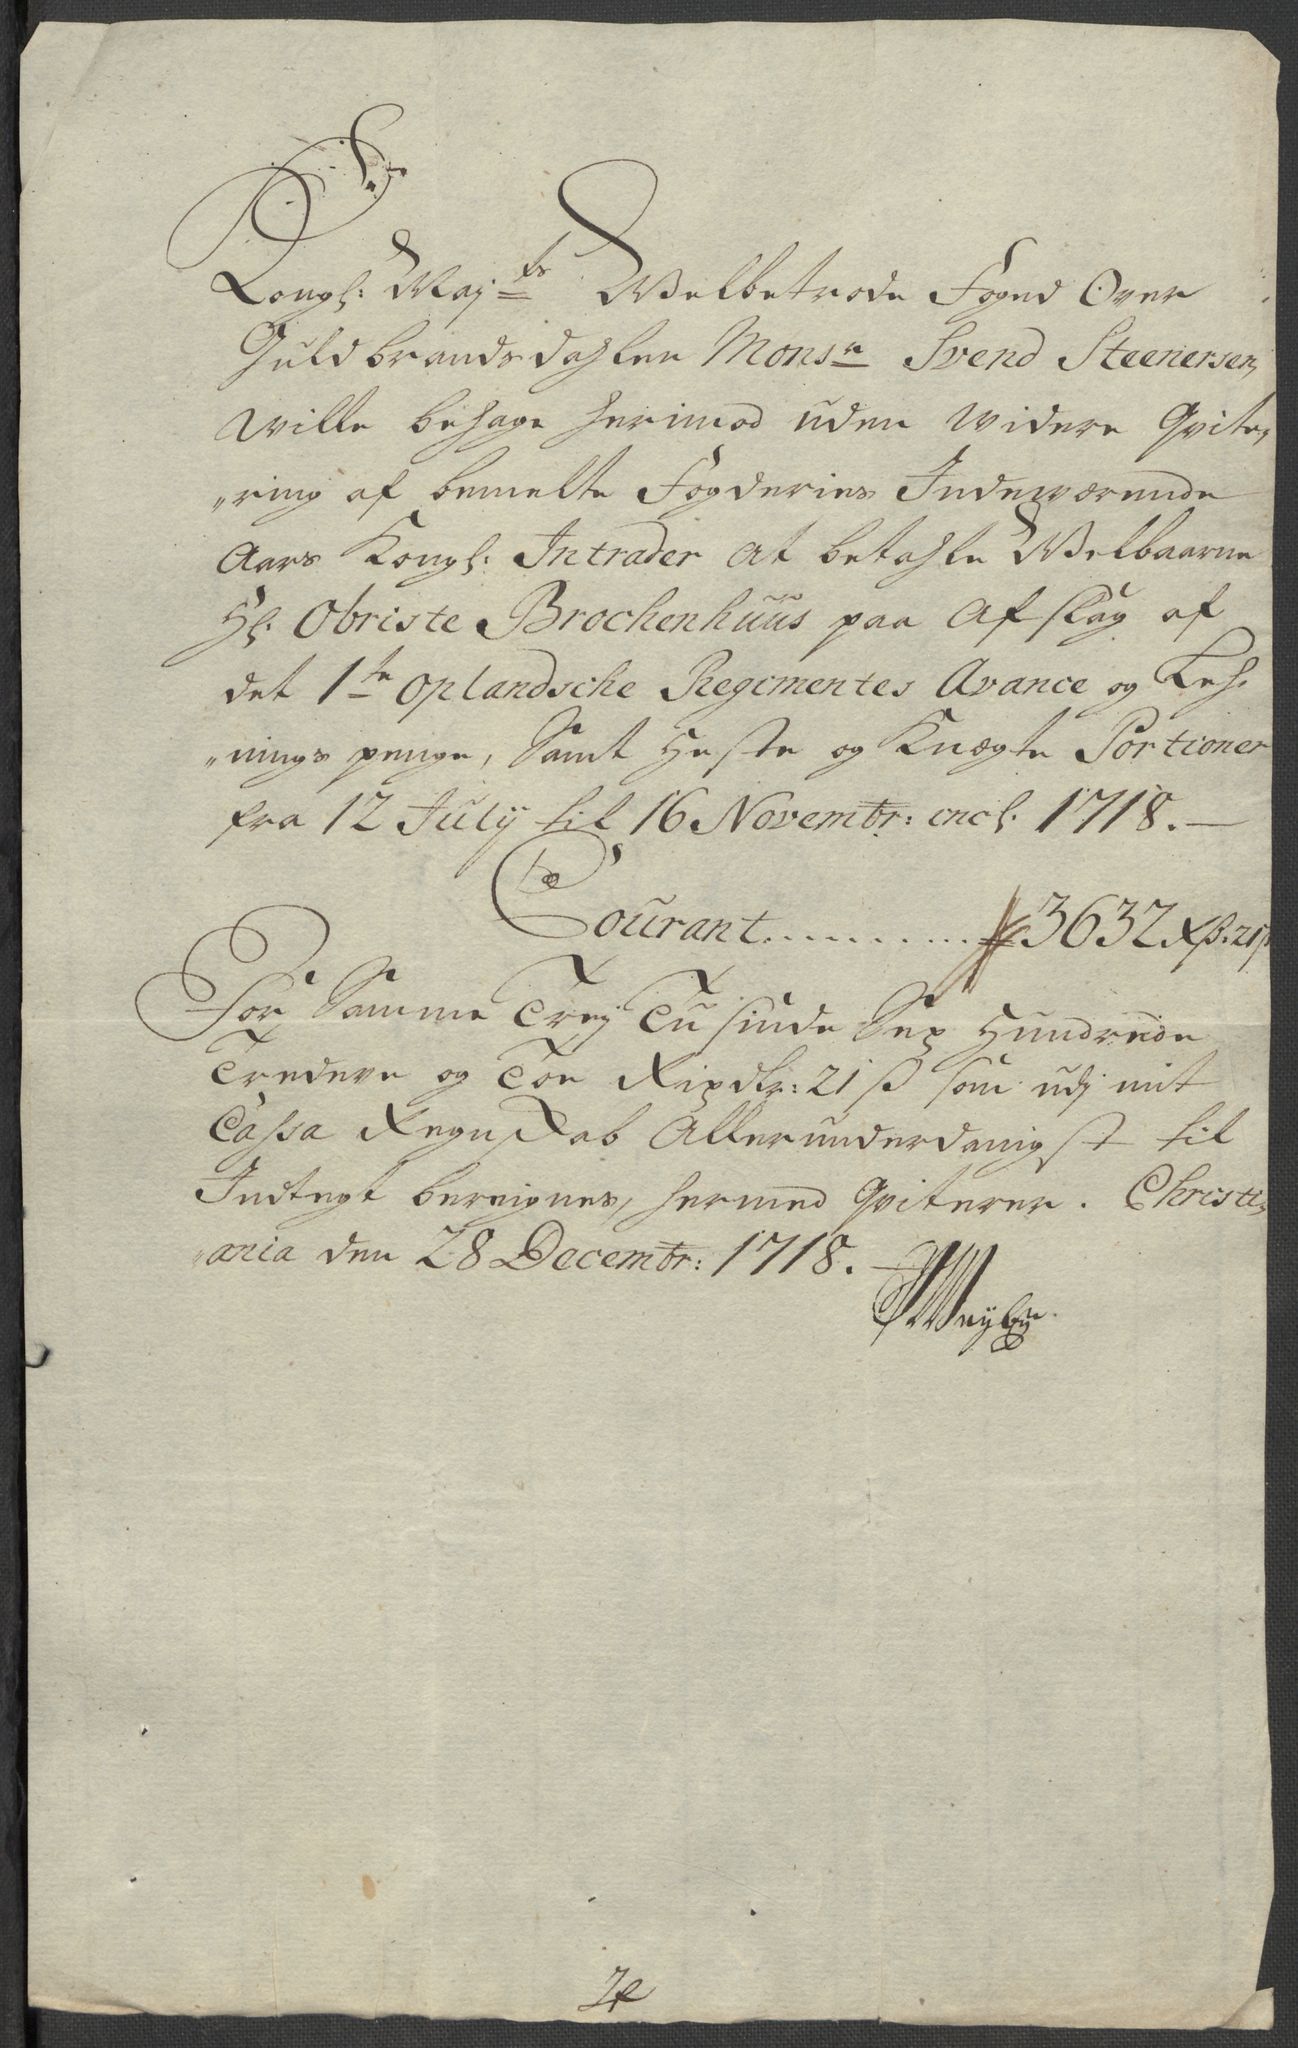 Kongl: Maj:ts Welbetrode Foged Over
Guldbrandsdahlen Monsr Svend Steenersen,
wille behage herimod uden widere Qvite,
„ring af bemelte Fogderies Indeværende
Aars Kongl: Intrader at betahle Welbaarne
Hl: Obriste Brochenhuus paa Afslag af
det 1te Oplandsche Regimentes Avance og Leh,
„nings penge, Samt Heste og Knægte Portioner
fra 12 July til 16 Novembr: incl: 1718. —
Courant .......... 3632 Rdr: 21 ß
For Samme Trej Tusinde Sex Hundrede
Tredeve og Toe Rixdlr: 21 ß som udj mit
Cassa Regnskab Allerunderdanigst til
Indtegt bereignes, hermed Qviterer. Christi,
„ania den 28 Decembr: 1718. —